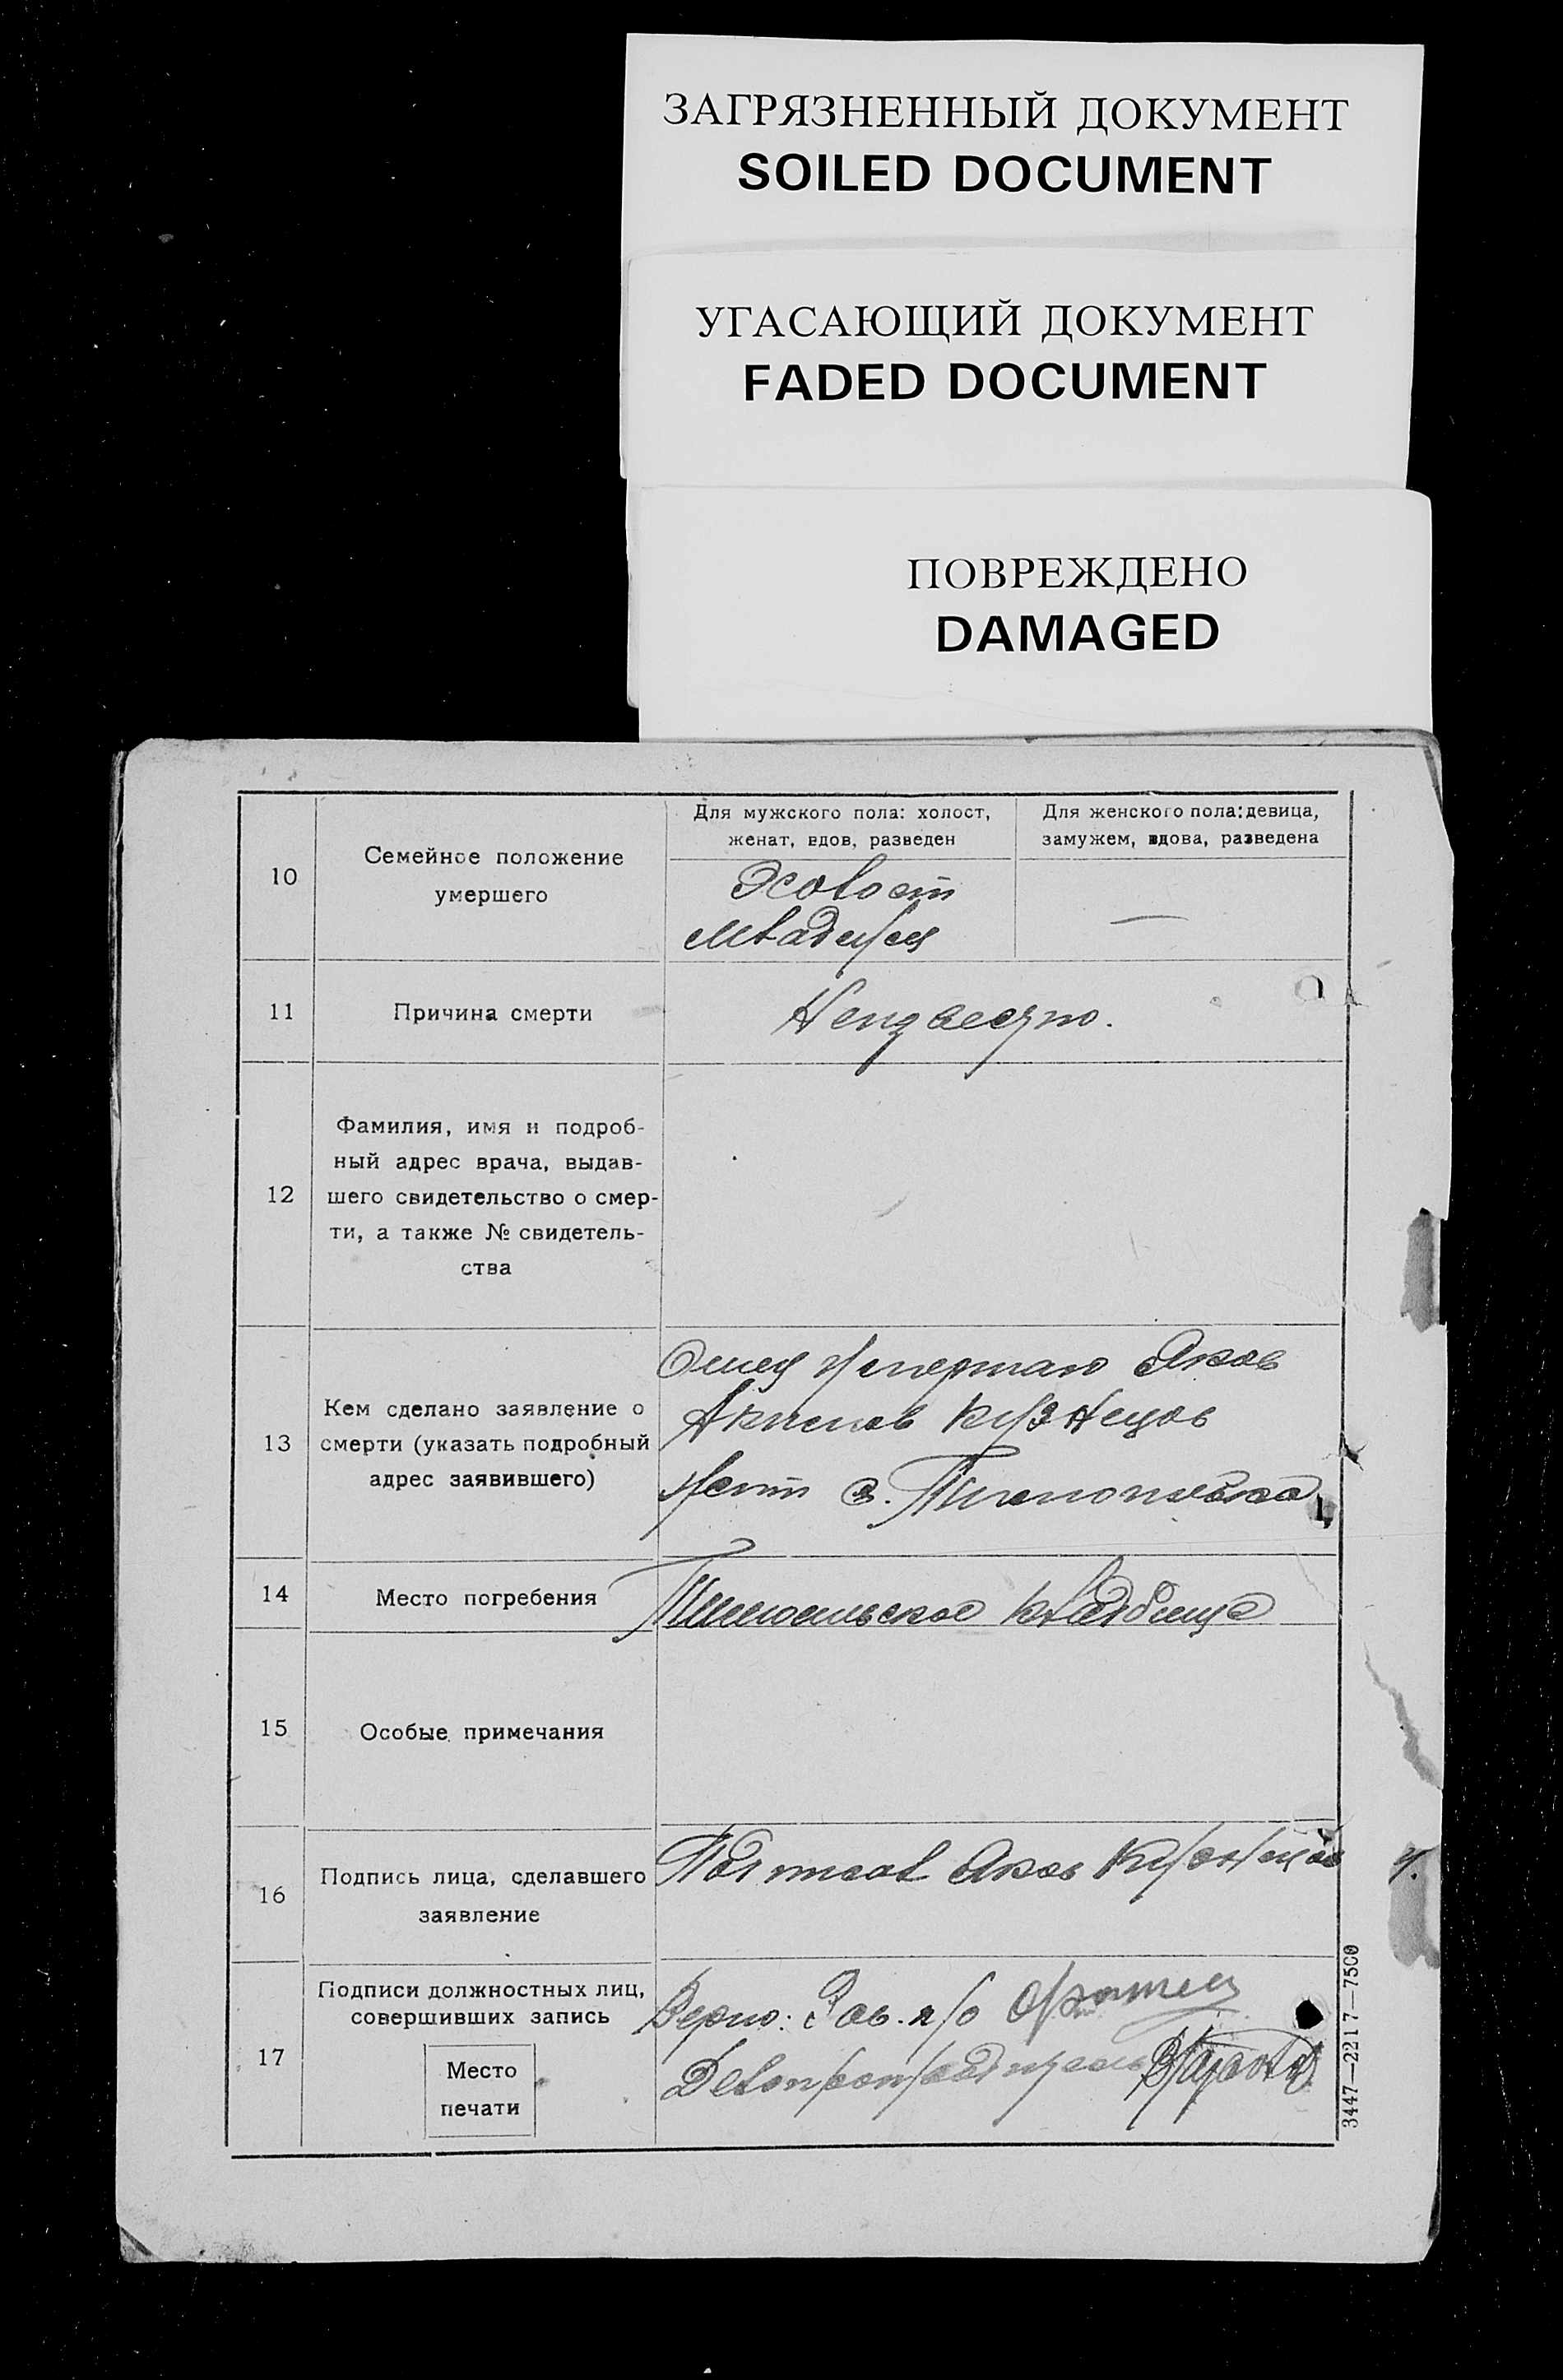 ЗАГРЯЗНЕННЫЙ ДОКУМЕНТ
SOILED DOCUMENT
УГАСАЮЩИЙ ДОКУМЕНТ
FADED DOCUMENT
ПОВРЕЖДЕНО
DAMAGED
10
Семейное положение
умершего
Для мужского пола: холост,
женат, вдов, разведен
Для женского пола: девица,
замужем, вдова, разведена
Холост
Младенец
—
11
Причина смерти
Неизвестно.
12
Фамилия, имя и подроб-
ный адрес врача, выдав-
шего свидетельство о смер-
ти, а также № свидетель-
ства
13
Кем сделано заявление о
смерти (указать подробный
адрес заявившего)
Отец Яков
Кузнецов
14
Место погребения
кладбище
15
Особые примечания
16
Подпись лица, сделавшего
заявление
Подписал Яков Кузнецов
17
Подписи должностных лиц,
совершивших запись
Место
печати
Верно: Зав. п/о
Делопроизводитель
3447—2217—7500